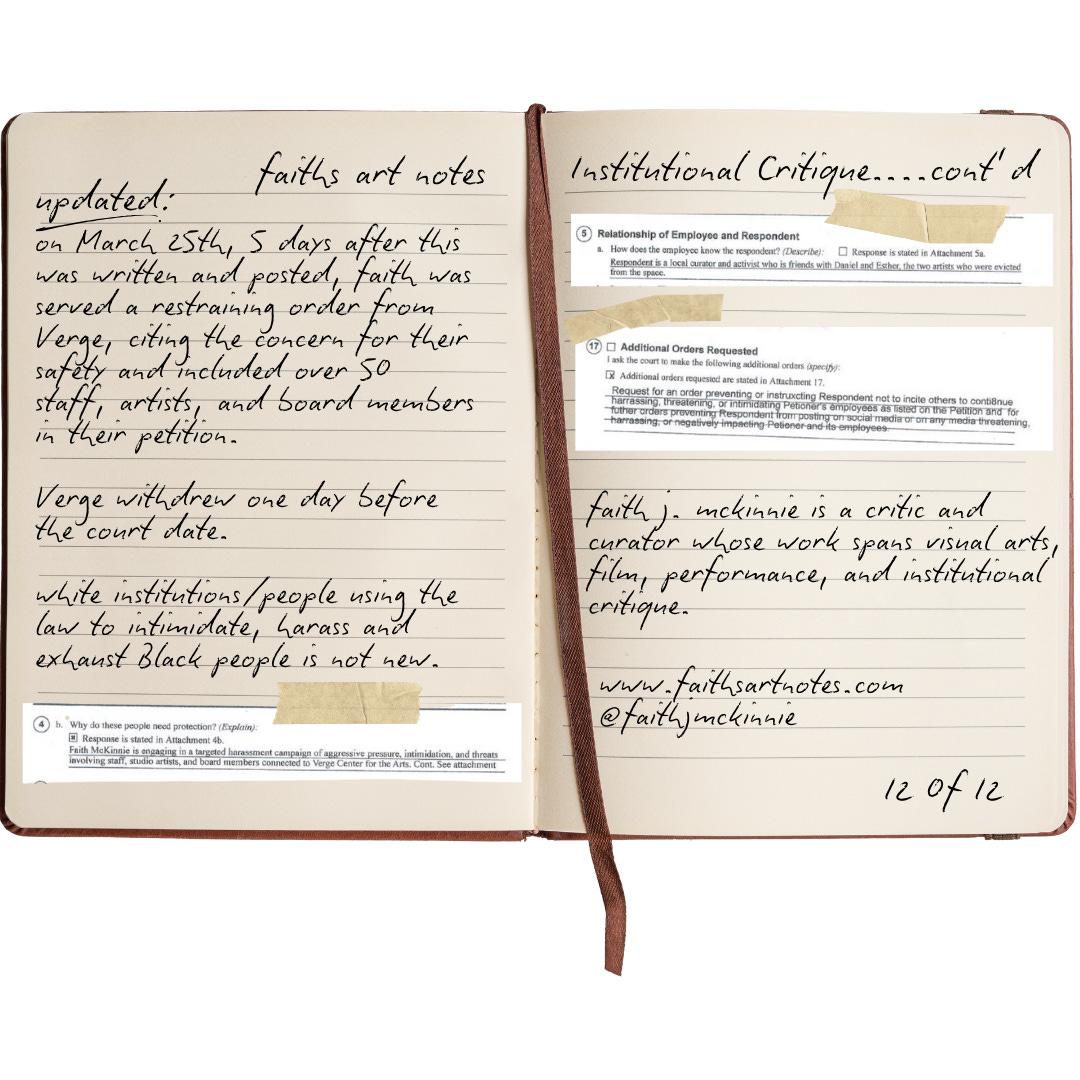 faiths art notes
updated:
on March 25th, 5 days after this
was written and posted, faith was
served a restraining order from
Verge, citing the concern for their
safety and included over 50
staff, artists, and board members
in their petition.
Verge withdrew one day before
the court date.
white institutions/people using the
law to intimidate, harass and
exhaust Black people is not new.
4 b. Why do these people need protection? (Explain):
Response is stated in Attachment 4b.
Faith McKinnie is engaging in a targeted harassment campaign of aggressive pressure, intimidation, and threats
involving staff, studio artists, and board members connected to Verge Center for the Arts. Cont. See attachment
Institutional Critique....cont'd
5 Relationship of Employee and Respondent
a. How does the employee know the respondent? (Describe): Response is stated in Attachment 5a.
Respondent is a local curator and activist who is friends with Daniel and Esther, the two artists who were evicted
from the space.
17 Additional Orders Requested
I ask the court to make the following additional orders (specify):
Additional orders requested are stated in Attachment 17.
Request for an order preventing or instruxcting Respondent not to incite others to conti8nue
harrassing, threatening, or intimidating Petioner's employees as listed on the Petition and for
futher orders preventing Respondent from posting on social media or on any media threatening,
harrassing, or negatively impacting Petioner and its employees.
faith j. mckinnie is a critic and
curator whose work spans visual arts,
film, performance, and institutional
critique.
www.faithsartnotes.com
@faithjmckinnie
12 of 12